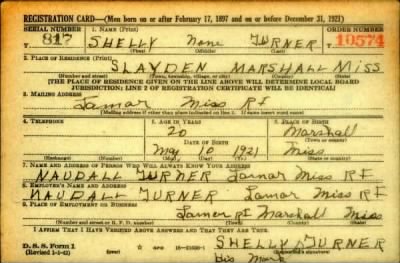 REGISTRATION CARD—(Men born on or after February 17, 1897 and on or before December 31, 1921)
SERIAL NUMBER 1. NAME (Print) ORDER NUMBER
S 817 SHELLY None TURNER 10574
(First) (Middle) (Last)
2. PLACE OF RESIDENCE (Print)
SLAYDEN MARSHALL MISS
(Number and street) (Town, township, village, or city) (County) (State)
[THE PLACE OF RESIDENCE GIVEN ON THE LINE ABOVE WILL DETERMINE LOCAL BOARD
JURISDICTION; LINE 2 OF REGISTRATION CERTIFICATE WILL BE IDENTICAL]
3. MAILING ADDRESS
Lamar Miss R1
[Mailing address if other than place indicated on line 2. If same insert word same]
4. TELEPHONE 5. AGE IN YEARS 6. PLACE OF BIRTH
20 Marshall
DATE OF BIRTH (Town or county)
May 10 1921 Miss
(Exchange) (Number) (Mo.) (Day) (Yr.) (State or country)
7. NAME AND ADDRESS OF PERSON WHO WILL ALWAYS KNOW YOUR ADDRESS
NAUDALL TURNER Lamar Miss R
8. EMPLOYER'S NAME AND ADDRESS
NAUDALL TURNER Lamar Miss R
9. PLACE OF EMPLOYMENT OR BUSINESS
Lamar Marshall Miss
(Number and street or R. F. D. number) (Town) (County) (State)
I AFFIRM THAT I HAVE VERIFIED ABOVE ANSWERS AND THAT THEY ARE TRUE.
D. S. S. Form 1 SHELLY TURNER
(Revised 1-1-42) (over) His Mark